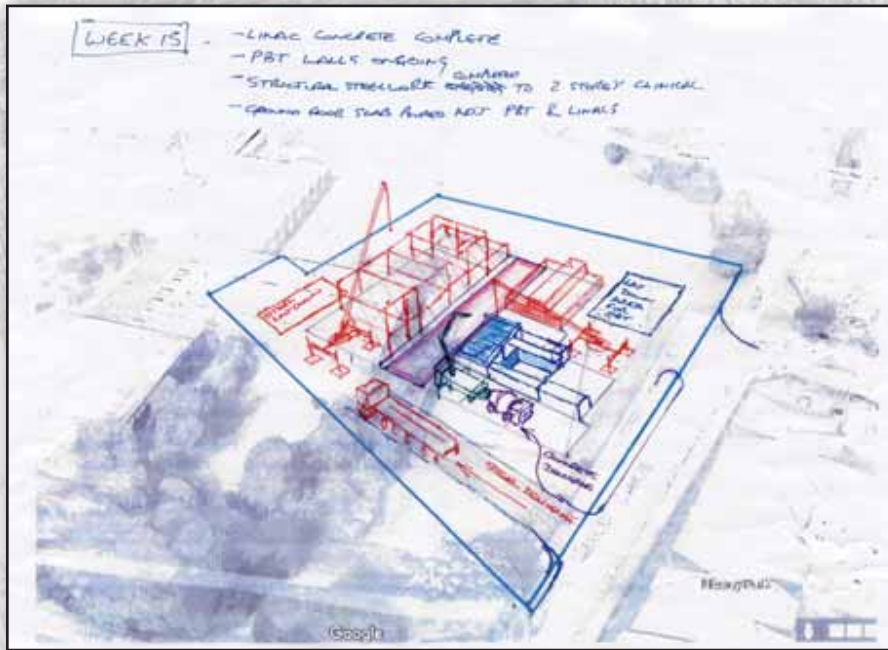 WEEK 15
- LINAC CONCRETE COMPLETE
- PBT WALLS ONGOING
- STRUCTURAL STEELWORK COMPLETED TO 2 STOREY CLINICAL
- GROUND FLOOR SLAB POURED NOT PBT & LINACS
STEEL LAY DOWN
LAY DOWN AREA FOR PBT
CONCRETE
STEEL DELIVERIES
Google